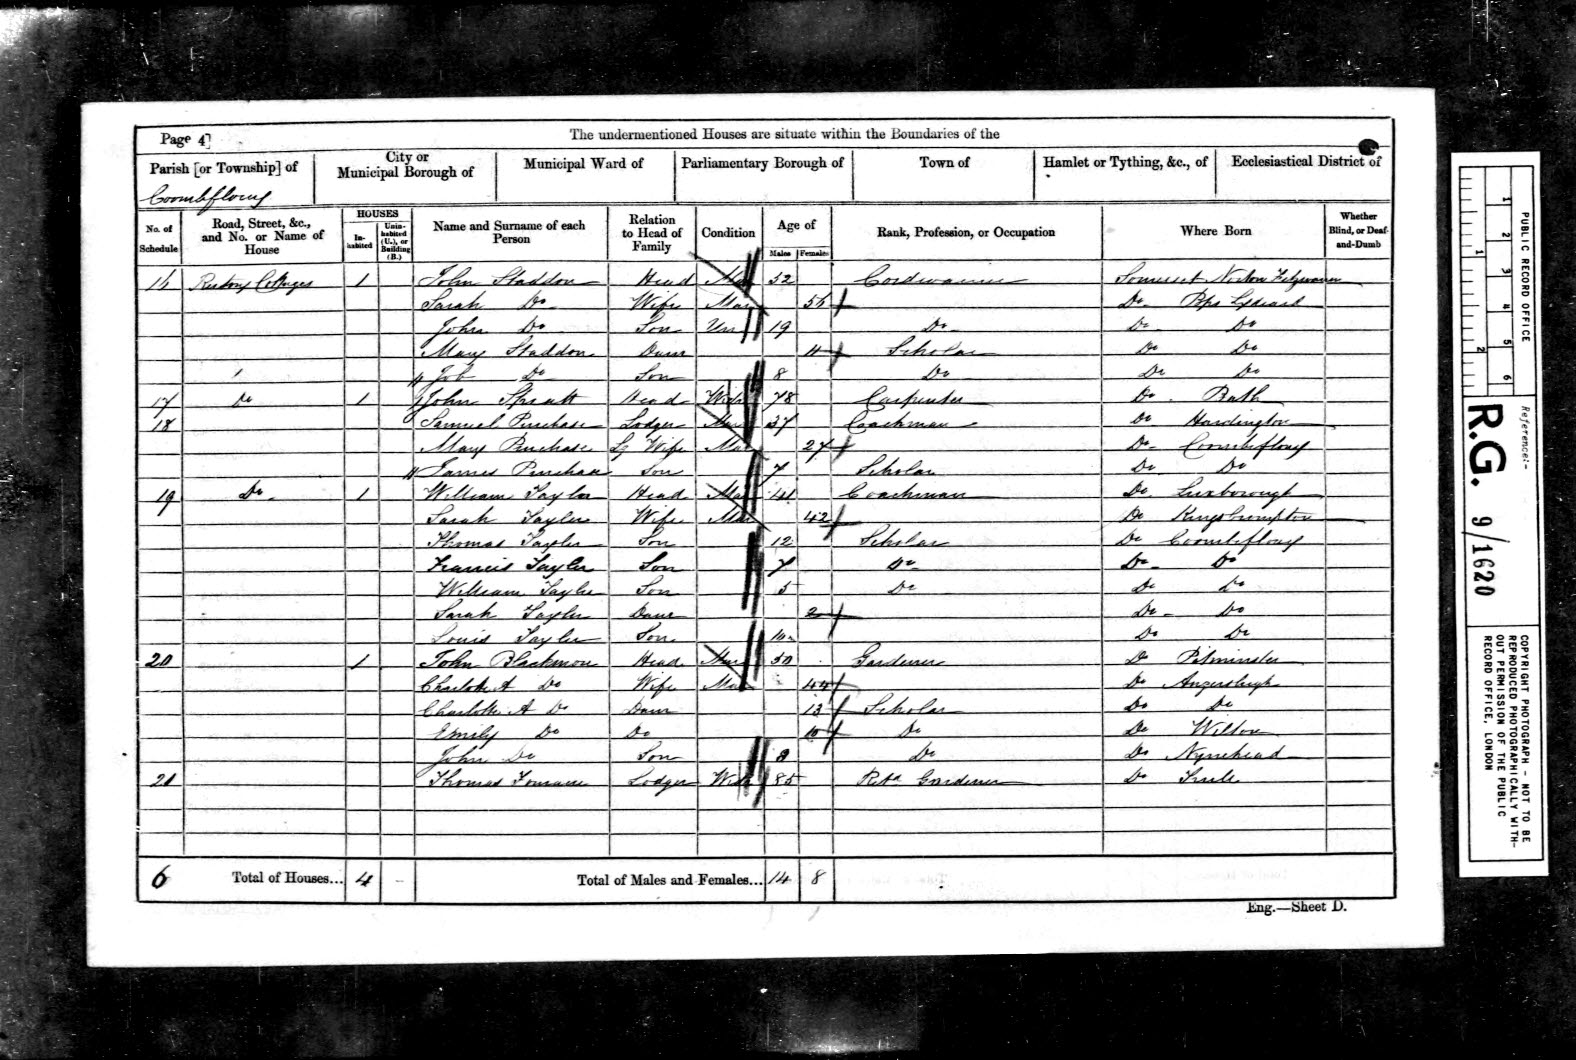 Page 4]
The undermentioned Houses are situate within the Boundaries of the
Parish [or Township] of
City or Municipal Borough of
Municipal Ward of
Parliamentary Borough of
Town of
Hamlet or Tything, &c., of
Ecclesiastical District of
Coombflorey
No. of Schedule
Road, Street, &c., and No. or Name of House
HOUSES
In-habited
Unin-habited (U.), or Building (B.)
Name and Surname of each Person
Relation to Head of Family
Condition
Age of
Males
Females
Rank, Profession, or Occupation
Where Born
Whether Blind, or Deaf-and-Dumb
16 Cottages 1 John Staddon Head Mar 52 Cordwainer Somerset Norton Fitzwarren
Sarah Do Wife Mar 56 Do Bps Lydeard
John Do Son Un 19 Do Do Do
Mary Staddon Daur 11 Scholar Do Do
Job Do Son 8 Do Do Do
17 Do 1 John Spratt Head Widr 78 Carpenter Do Bath
18 Samuel Purchase Lodger Mar 37 Coachman Do Hardington
Mary Purchase Lg Wife Mar 27 Do Coombflorey
James Purchase Son 7 Scholar Do Do
19 Do 1 William Tayler Head Mar 41 Coachman Do Luxborough
Sarah Tayler Wife Mar 42 Do Kingsbrompton
Thomas Tayler Son 12 Scholar Do Coombflorey
Francis Tayler Son 7 Do Do Do
William Tayler Son 5 Do Do Do
Sarah Tayler Daur 2 Do Do
Louis Tayler Son Do Do
20 1 John Blackmore Head Mar 50 Gardener Do Pitminster
Charlotte A Do Wife Mar 44 Do Angersleigh
Charlotte A Do Daur 13 Scholar Do Do
Emily Do Do 10 Do Do Wilton
John Do Son 8 Do Do Nynehead
21 Thomas Lodger Widr 85 Retd Gardener Do
6 Total of Houses... 4 - Total of Males and Females... 14 8
Eng.—Sheet D.
PUBLIC RECORD OFFICE
1 2 3 4 5 6
1 2
Reference:-
R.G. 9/1620
COPYRIGHT PHOTOGRAPH - NOT TO BE
REPRODUCED PHOTOGRAPHICALLY WITH-
OUT PERMISSION OF THE PUBLIC
RECORD OFFICE, LONDON